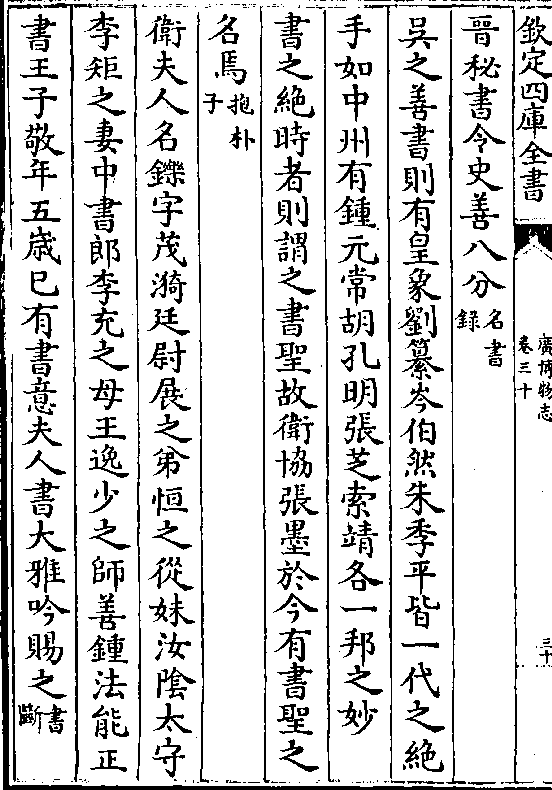 欽定四庫全書
廣博物志
卷三十
三十
晉秘書令史善八分名書
錄
吳之善書則有皇象劉纂岑伯然朱季平皆一代之絶
手如中州有鍾元常胡孔明張芝索靖各一邦之妙
書之絶時者則謂之書聖故衛協張墨於今有書聖之
名焉抱朴
子
衛夫人名鑠字茂漪廷尉展之弟恒之從妹汝陰太守
李矩之妻中書郎李充之母王逸少之師善鍾法能正
書王子敬年五歳已有書意夫人書大雅吟賜之書
斷